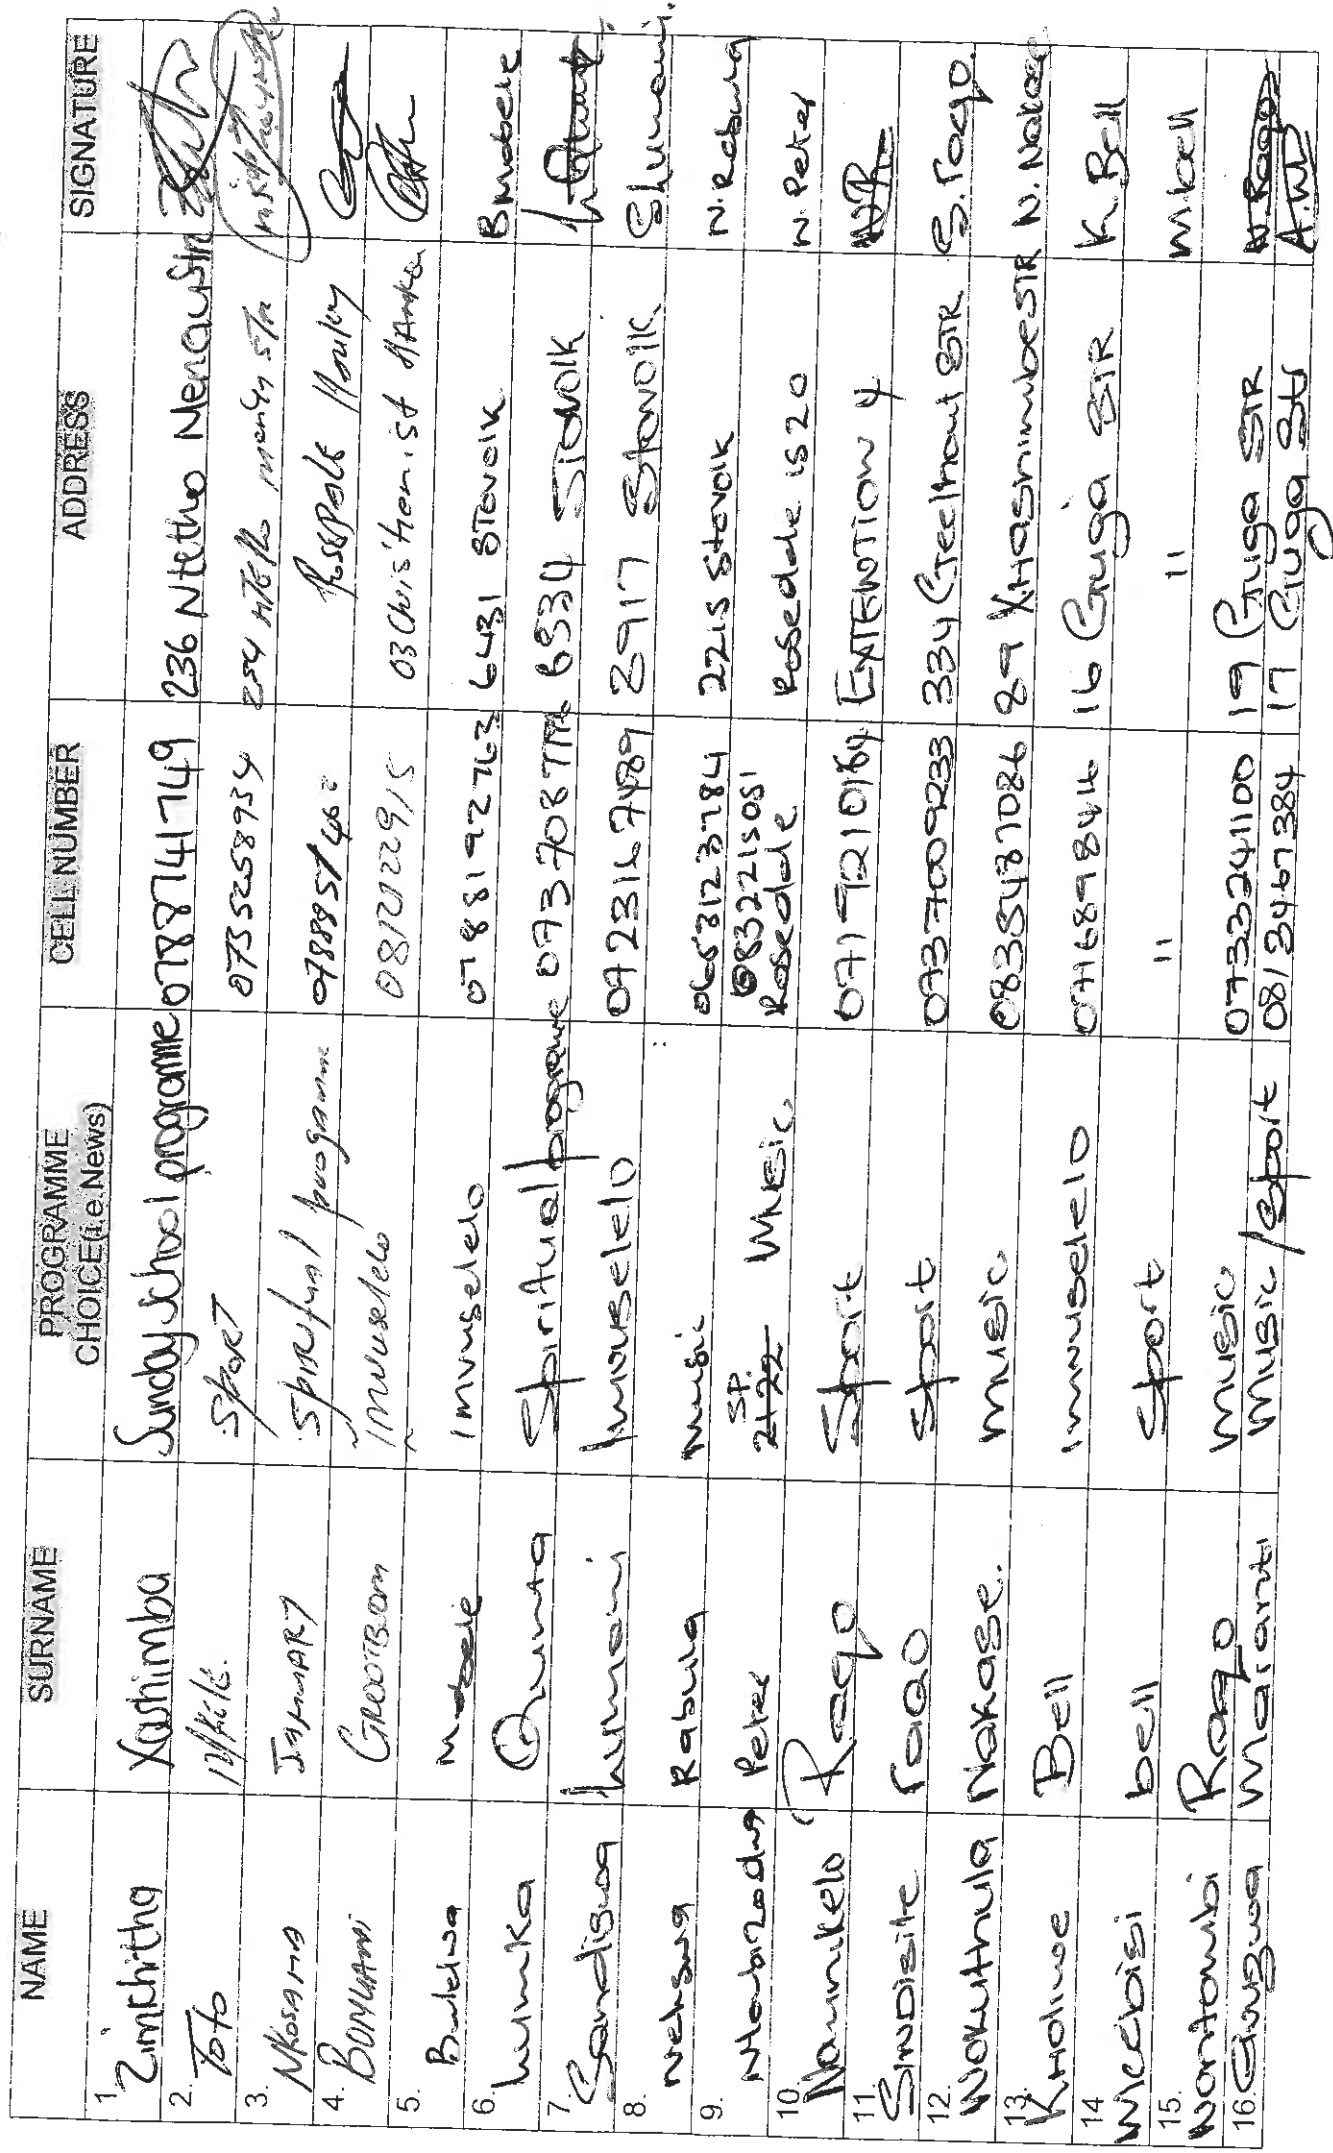 NAME SURNAME PROGRAMME CHOICE(i.e.News) CELL NUMBER ADDRESS SIGNATURE
1. Zimkhitha Xashimba Sunday School programme 0788741749 236 Ntetho
2. Toto SPORT 0735258934
3. Nkosana JANUARY Spiritual programme Rosedale
4. BONGANI GROOTBOOM Imvuselelo
5. Bulelwa Mabele Imvuselelo 0788192763 6431 Stovolk B Mabele
6. Lumka Qunta Spiritual programme 6334 Stovolk
7. Sandiswa Lumani Imvuselelo 0723167489 2917 Stovolk
8. Rabula music 0653123784 2215 Stovolk N. Rabula
9. Peter SP. 2122 Music 0832215051 Rosedale Rosedale is 20 N. Peter
10. Nomnikelo Raqo Sport EXTENTION 4
11. SINDISILE Faqo Sport 0737009233 334 Geelhout STR S. Faqo.
12. Nokuthula Nakase. music 0835487086 89 Xhashimbe STR N. Nakase
13. Kholiwe Bell imvuselelo 0716898414 16 Guga STR K. Bell
14 Mcebisi bell Sport " " M. bell
15. Nontombi Raqo music 0733241100 19 Guga STR N. Raqo
16. Cingwa Music / Sport 0813467384 17 Guga Str A.W